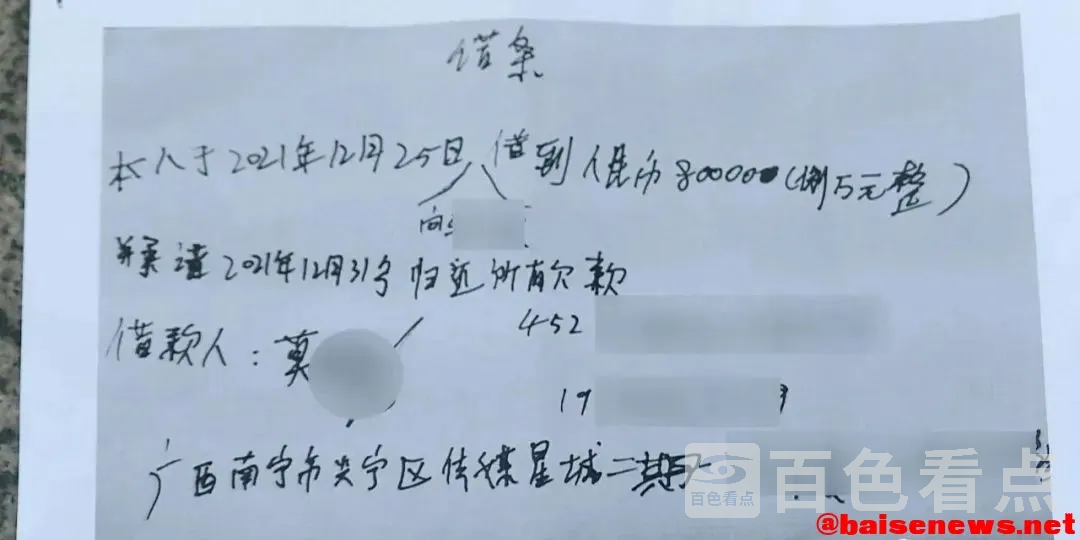 借条
本人于2021年12月25日借到人民币80000(捌万元整)
向
并承诺2021年12月31号归还所有欠款
借款人：莫
452
19
广西南宁市兴宁区传媒星城二期
百色看点
百色看点
@baisenews.net